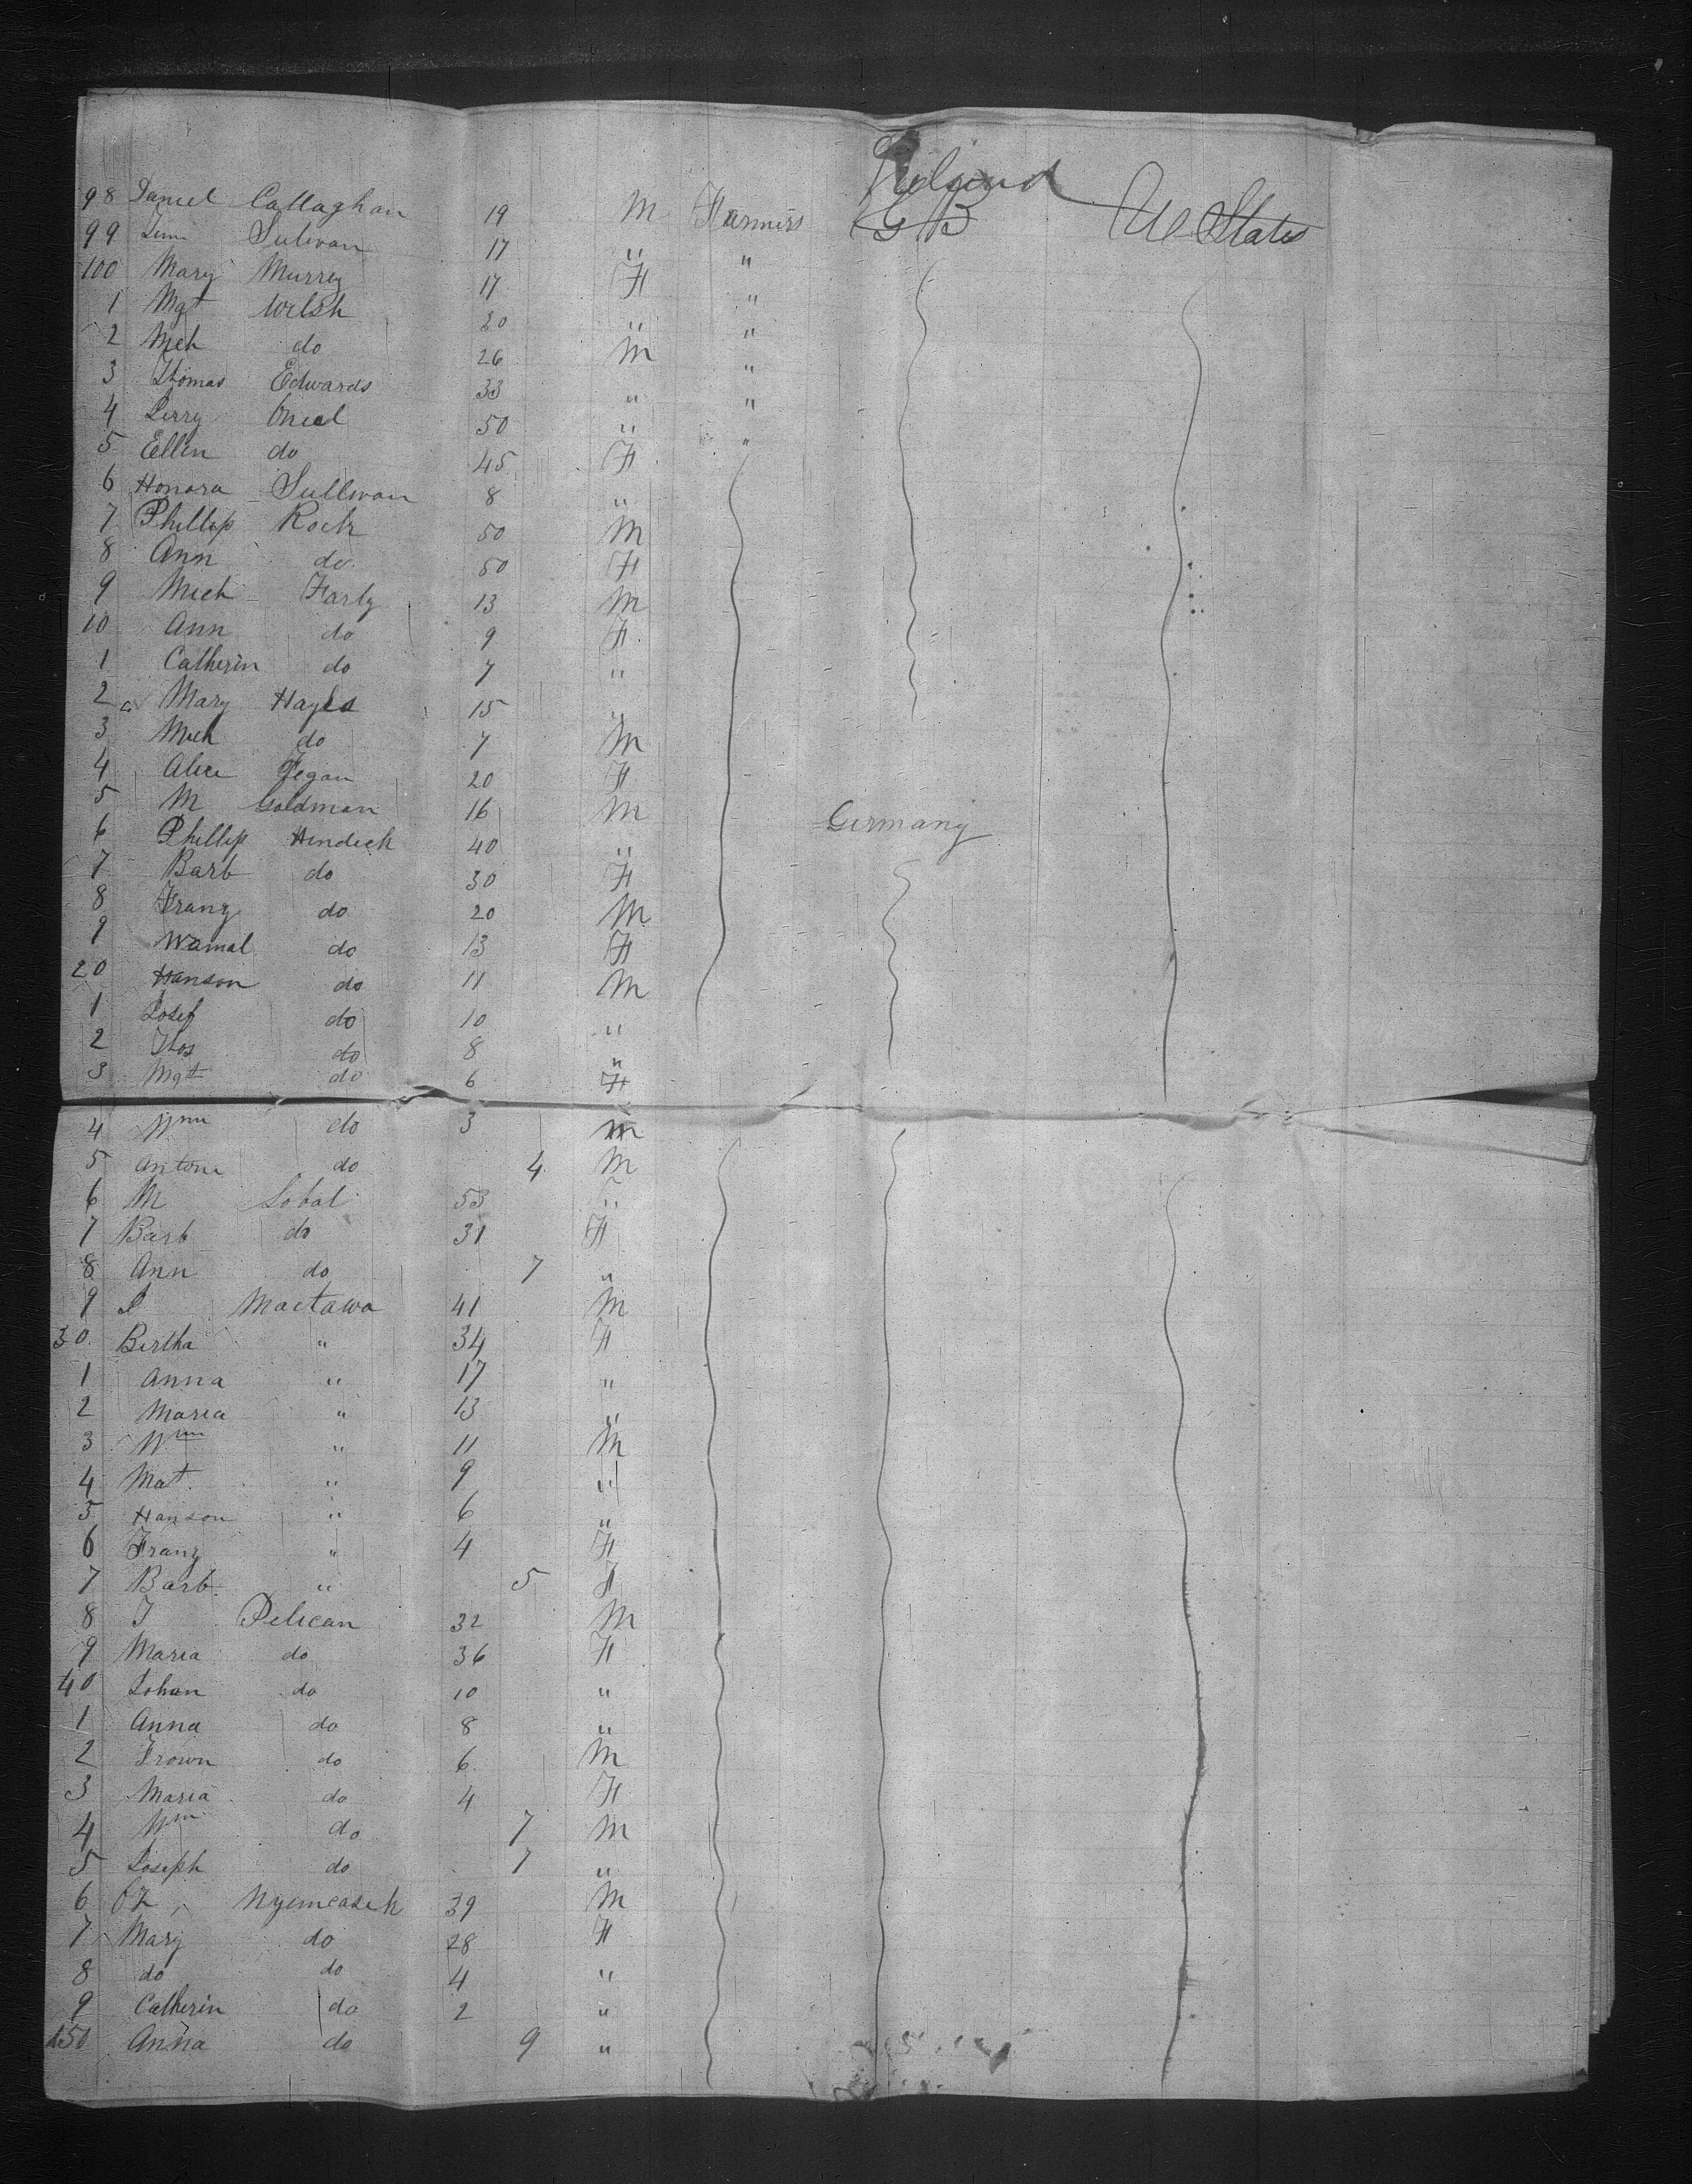 Ireland
98 Daniel Callaghan 19 M Farmers G B U States
99 Sulivan 17 " "
100 Mary Murrey 17 F "
1 Mgt Welsh 30 " "
2 Mch do 26 M "
3 Thomas Edwards 33 " "
4 Jerry Oneal 50 " "
5 Ellen do 45 F
6 Honora Sullivan 8 "
7 Phillip Rock 50 M
8 Ann do 50 F
9 Mich Farly 13 M
10 Ann do 9 F
1 Catherin do 7 "
2 Mary Hayes 15 "
3 Mich do 7 M
4 Alice Fegan 20 F
5 M Goldman 16 M Germany
6 Phillip Hindick 40 "
7 Barb do 30 F
8 Franz do 20 M
9 Wamal do 13 F
20 Hanson do 11 M
1 Josef do 10 "
2 Thos do 8 "
3 Mgt do 6 F
4 Wm do 3 M
5 Anton do 4 M
6 M Sobal 53 "
7 Barb do 31 F
8 Ann do 7 "
9 J Mactawa 41 M
30 Bertha " 34 F
1 Anna " 17 "
2 Maria " 13 "
3 Wm " 11 M
4 Mat " 9 "
5 Hanson " 6 "
6 Franz " 4 F
7 Barb " 5 F
8 J Pelican 32 M
9 Maria do 36 F
40 Johan do 10 "
1 Anna do 8 "
2 Frown do 6 M
3 Maria do 4 F
4 Wm do 7 M
5 Joseph do 7 "
6 Nyemcasek 39 M
7 Mary do 28 F
8 do do 4 "
9 Catherin do 2 "
150 Anna do 9 "